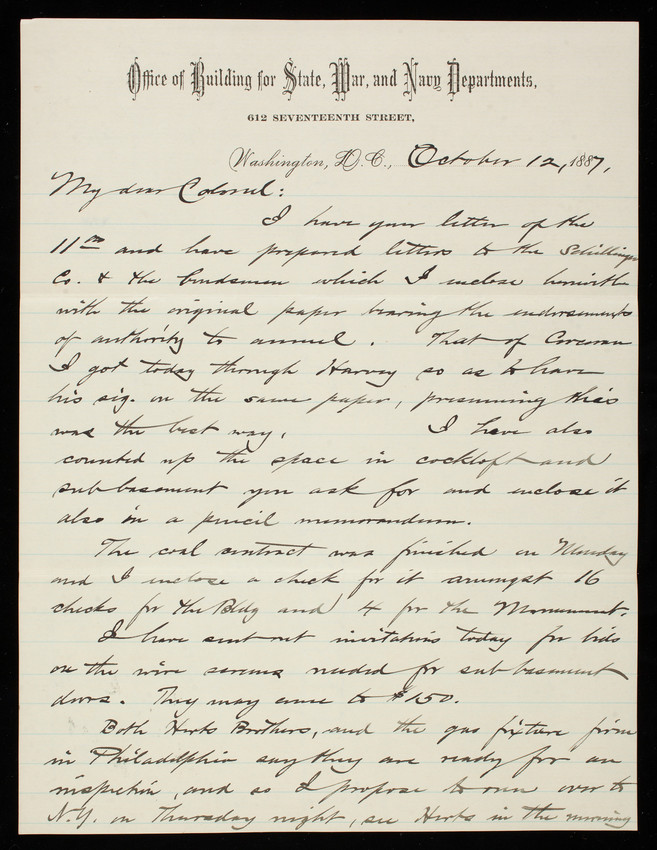 Office of Building for State, War, and Navy Departments,
612 SEVENTEENTH STREET,
Washington, D.C., October 12, 1887.
My dear Colonel:
I have your letter of the
11th and have prepared letters to the Schillinger
Co. & the bondsmen which I inclose herewith
with the original paper bearing the endorsements
of authority to annul. That of Corcoran
I got today through Harvey so as to have
his sig. on the same paper, presuming this
was the best way. I have also
counted up the space in cockloft and
sub-basement you ask for and inclose it
also in a pencil memorandum.
The coal contract was finished on Monday
and I inclose a check for it amongst 16
checks for the Bldg and 4 for the Monument.
I have sent out invitations today for bids
on the wire screens needed for sub-basement
doors. They may come to $150.
Both Herts Brothers, and the gas fixture firm
in Philadelphia say they are ready for an
inspection, and so I propose to run over to
N.Y. on Thursday night, see Herts in the morning